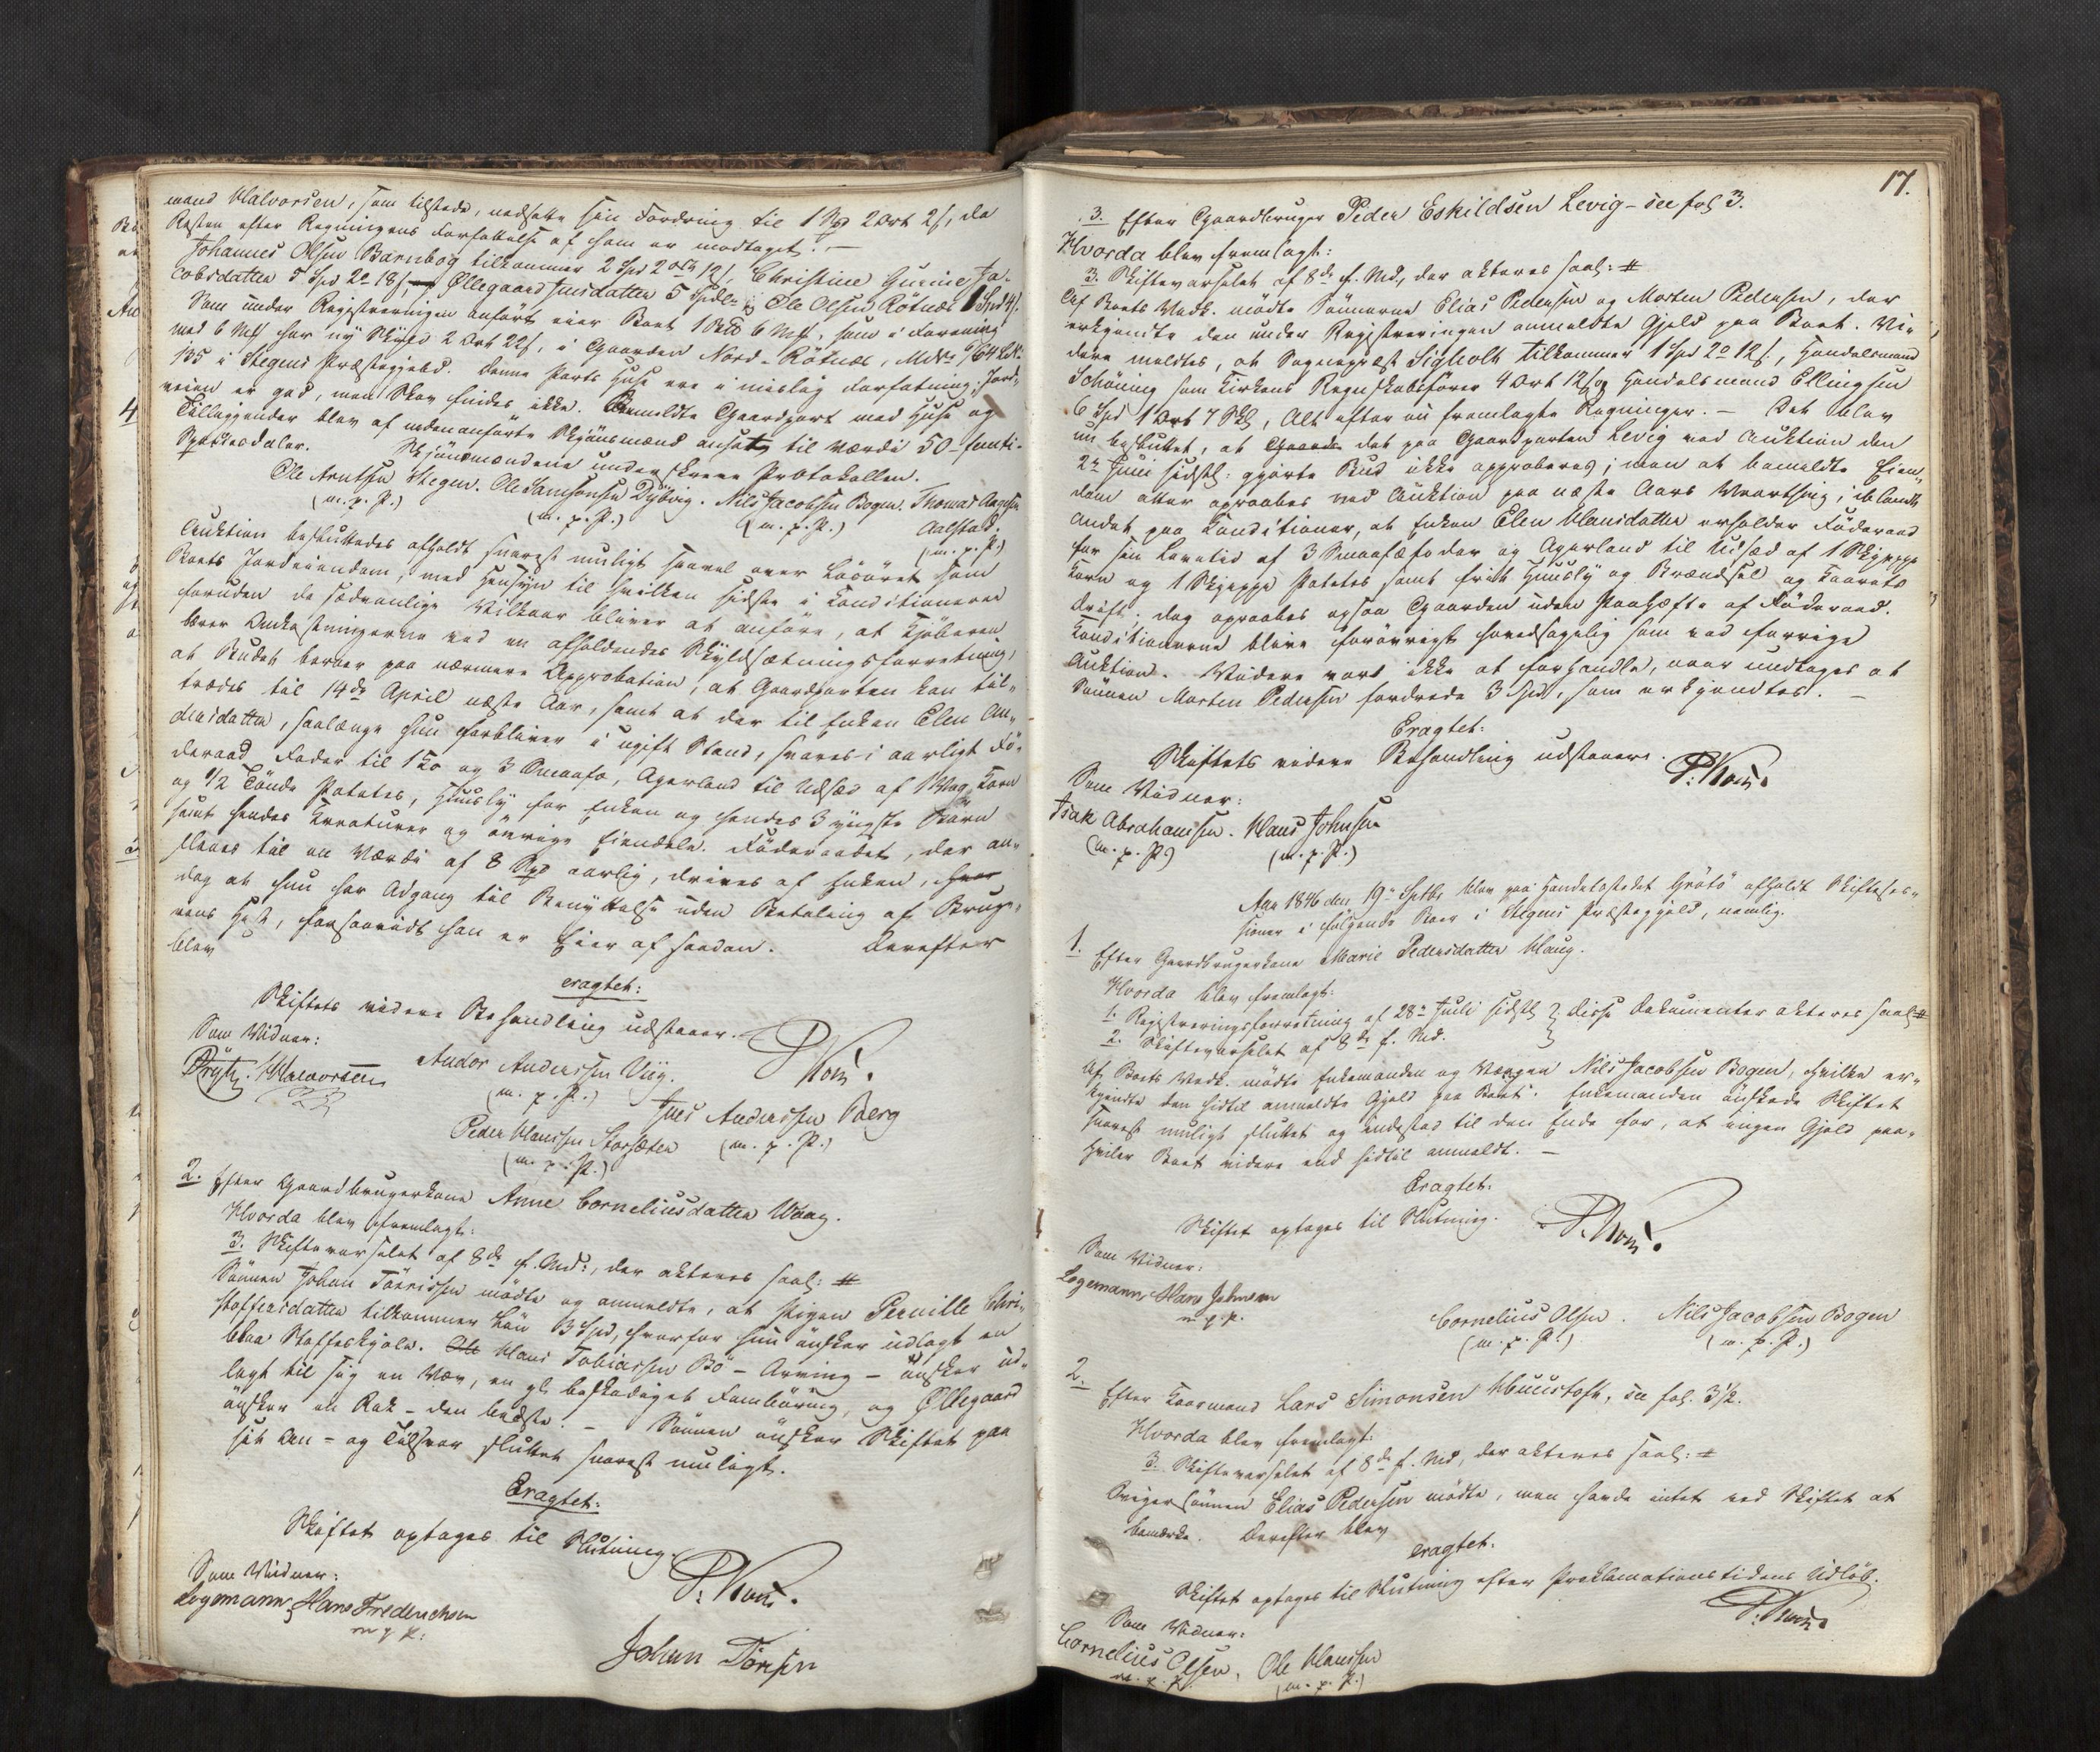 mand Halvorsen, som tilstede, nedsatte sin Fordring til 1 Spd 2 Ort 2 s, da
Resten efter Regningens Forfattelse af ham er modtaget. —
Johannes Olsen Barnbog tilkommer 2 Spd 2 Ort 12 s, Christine Gurine Ja-
cobsdatter 5 Spd 2 o 18 s, Øllegaard Jensdatter 5 Spdlr og Ole Olsen Rötnæs 1 Spd 4 s.
Som under Registreringen anført eier Boet 1 6 Mk, som i Forening
med 6 Mk har ny Skyld 2 Ort 22 s, i Gaarden Nord-Rötnæs, Matr. No 64 LNo
135 i Stegens Præstegjeld. Denne Parts Huse ere i mislig Forfatning; Jord-
veien er god, men Skov findes ikke. Anmeldte Gaardpart med Huse og
Tilliggender blev af nedenanførte Skjönsmænd ansat til Værdi 50 - femti -
Speciesdaler. Skjönsmændene underskrev Protokollen.
Ole Arntsen Stegen. Ole Samsonsen Dybvig. Nils Jacobsen Bogen. Thomas Aagesen
(m. p. P.) (m. p. P.) (m. p. P.) Aalstad.
(m. p. P.)
Auktion besluttedes afholdt snarest muligt saavel over Løsöret som
Boets Jordeiendom, med Hensyn til hvilken sidste i Conditionerne
foruden de sædvanlige Vilkaar bliver at anføre, at Kjöberen
bærer Omkostningerne ved en afholdendes Skyldsætningsforretning,
at Budet beroer paa nærmere Approbation, at Gaardparten kan til-
trædes til 14de April næste Aar, samt at der til Enken Elen An-
dreasdatter, saalænge hun forbliver i ugift Stand, svares i aarligt Fö-
deraad Foder til 1 Ko og 3 Smaafæ, Agerland til Udsæd af 1 Vog Korn
og 1/2 Tönde Potetes, Huusly for Enken og hendes 3 yngste Börn
samt hendes Kreaturer og övrige Eiendele. Föderaadet, der an-
slaaes til en Værdi af 8 Spd aarlig, drives af Enken,
dog at hun har Adgang til Benyttelse uden Betaling af Bruge-
rens Hest, forsaavidt han er Eier af saadan. Derefter
blev
eragtet:
Skiftets videre Behandling udstaaer.
Som Vidner:
Halvorsen Andor Anderssen Viig. P. Kom.
(m. p. P.) Jens Anderssen Berg
Peder Hanssen Storsæter (m. p. P.)
(m. p. P.)
2. Efter Gaardbrugerkone Anne Corneliusdatter Waag.
Hvorda blev fremlagt:
3. Skiftevarselet af 8de f. Md:, der akteres saal: #
Sönnen Johan Törrissen mödte og anmeldte, at Pigen Pernille Chri-
stoffersdatter tilkommer Lön 3 Spd, hvorfor hun önsker udlagt en
blaa Stoffeskjole. Hans Tobiassen Bö - Arving - önsker ud-
lagt til sig en Væv, en gl. beskadiget Fembøring, og Øllegaard
önsker en Rok - den bedste. - Sönnen önsker Skiftet paa
sit An- og Tilsvar sluttet snarest muligt.
Eragtet:
Skiftet optages til Slutning.
Som Vidner: P. Kom.
Logemann, Hans Frederichsen
m p P:
Johan Törisen
17.
3. Efter Gaardbruger Peder Eskildsen Levig - see fol 3.
Hvorda blev fremlagt:
3. Skiftevarselet af 8de f. Md., der akteres saal: #
Af Boets Vedk. mödte Sönnerne Elias Pedersen og Morten Pedersen, der
erkjendte den under Registreringen anmeldte Gjeld paa Boet. Vi-
dere meldtes, at Sognepræst Sigholt tilkommer 1 Spd 2 o 12 s, Handelsmand
Schöning som Kirkens Regnskabsfører 4 Ort 12 s og Handelsmand Ellingsen
6 Spd 1 Ort 7 Skl, Alt efter nu fremlagte Regninger. - Det blev
nu besluttet, at det paa Gaardparten Levig ved Auktion den
2n Juni sidstl: gjorte Bud ikke approberes; men at bemeldte Eien-
dom atter opraabes ved Auktion paa næste Aars Vaarthing, iblandt
Andet paa Conditioner, at Enken Elen Hansdatter erholder Föderaad
for sin Levetid af 3 Smaafæfoder og Agerland til Udsæd af 1 Skjeppe
Korn og 1 Skjeppe Potetes samt frit Huusly og Brændsel og Kaarets
Drift; dog opraabes ogsaa Gaarden uden Paahæfte af Föderaad.
Conditionerne blive forövrigt hovedsagelig som ved forrige
Auktion. Videre vort ikke at forhandle, naar undtages at
Sönnen Morten Pedersen fordrede 3 Spd, som erkjendtes. -
Eragtet:
Skiftets videre Behandling udstaaer.
Som Vidner: P. Kom.
Isak Abrahamsen. Hans Johnsen
(m. p. P.) (m. p. P.)
Aar 1846 den 19n Septbr blev paa Handelsstedet Grötö afholdt Skifteses-
sioner i fölgende Boer i Stegens Præstegjeld, nemlig.
1. Efter Gaardbrugerkone Marie Pedersdatter Haug.
Hvorda blev fremlagt:
1. Registreringsforretning af 28n Juli sidstl } disse Dokumenter akteres saal: #
2. Skiftevarselet af 8de f. Md.
Af Boets Vedk. mödte Enkemanden og Værgen Nils Jacobsen Bogen, hvilke er-
kjendte den hidtil anmeldte Gjeld paa Boet. Enkemanden önskede Skiftet
snarest muligt sluttet og indestod til den Ende for, at ingen Gjeld paa-
hviler Boet videre end hidtil anmeldt. -
Eragtet:
Skiftet optages til Slutning. P. Kom.
Som Vidner:
Logemann, Hans Johnsen
m p P.
Cornelius Olsen. Nils Jacobsen Bogen
(m. p. P.) (m. p. P.)
2. Efter Kaarmand Lars Simonsen Huustoft, see fol. 3 1/2.
Hvorda blev fremlagt:
3. Skiftevarselet af 8de f. Md, der akteres saal: #
Svigersönnen Elias Pedersen mödte, men havde intet ved Skiftet at
bemærke. Derefter blev
eragtet:
Skiftet optages til Slutning efter Proklamationstidens Udløb.
Som Vidner: P. Kom.
Cornelius Olsen, Ole Hanssen
m. p. P. (m. p. P.)